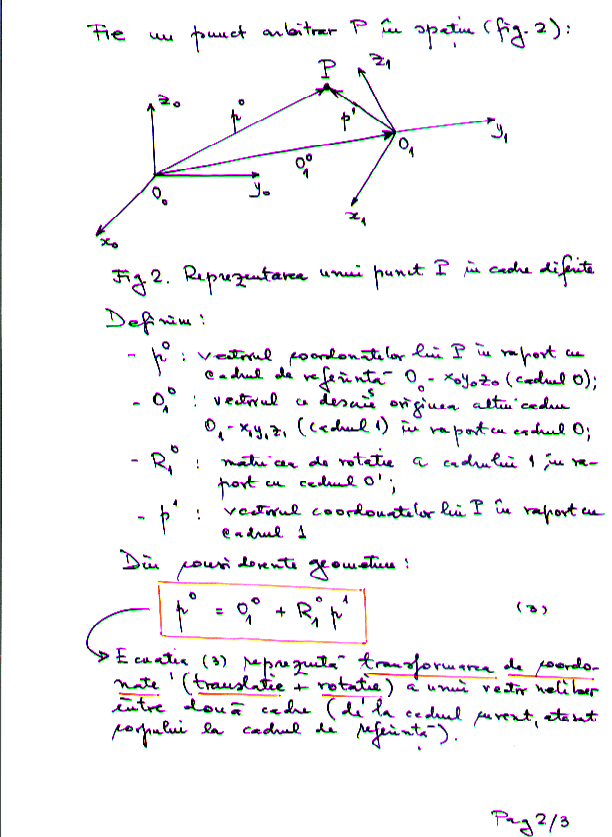 Fie un punct arbitrar P în spațiu (fig. 2):
z₁
P
z₀
p⁰
p¹
y₁
O₁
O₁⁰
O₀
y₀
x₁
x₀
Fig 2. Reprezentarea unui punct P în cadre diferite
Definim:
- p⁰ : vectorul coordonatelor lui P în raport cu
cadrul de referință O₀-x₀y₀z₀ (cadrul 0);
- O₁⁰ : vectorul ce descrie originea altui cadru
O₁-x₁y₁z₁ (cadrul 1) în raport cu cadrul 0;
- R₁⁰ : matricea de rotație a cadrului 1 în ra-
port cu cadrul 0;
- p¹ : vectorul coordonatelor lui P în raport cu
cadrul 1
Din considerente geometrice:
p⁰ = O₁⁰ + R₁⁰ p¹ (3)
Ecuația (3) reprezintă transformarea de coordo-
nate (translație + rotație) a unui vector
între două cadre (de la cadrul curent, atașat
corpului la cadrul de referință).
Pag 2/3